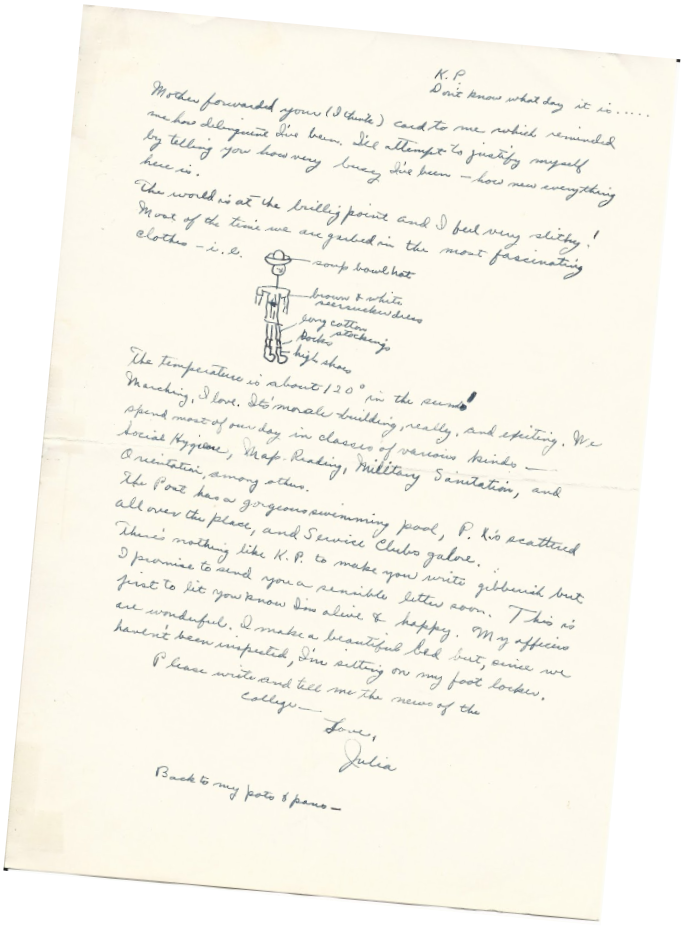 K.P.
Don't know what day it is.....
Mother forwarded your (I think) card to me which reminded
me how delinquent I've been. I'll attempt to justify myself
by telling you how very busy I've been – how new everything
here is.
The world is at the brillig point and I feel very slithy!
Most of the time we are garbed in the most fascinating
clothes – i.e.
soup bowl hat
brown & white
seersucker dress
long cotton
stockings
socks
high shoes
The temperature is about 120° in the sun!
Marching, I love. Its' morale building, really, and exciting. We
spend most of our day in classes of various kinds –
Social Hygiene, Map-Reading, Military Sanitation, and
Orientation, among others.
The Post has a gorgeous swimming pool, P.X.'s scattered
all over the place, and Service Clubs galore.
There's nothing like K.P. to make you write gibberish but
I promise to send you a sensible letter soon. This is
just to let you know I'm alive & happy. My officers
are wonderful. I make a beautiful bed but, since we
haven't been inspected, I'm sitting on my foot locker.
Please write and tell me the news of the
college –
Love,
Julia
Back to my pots & pans –